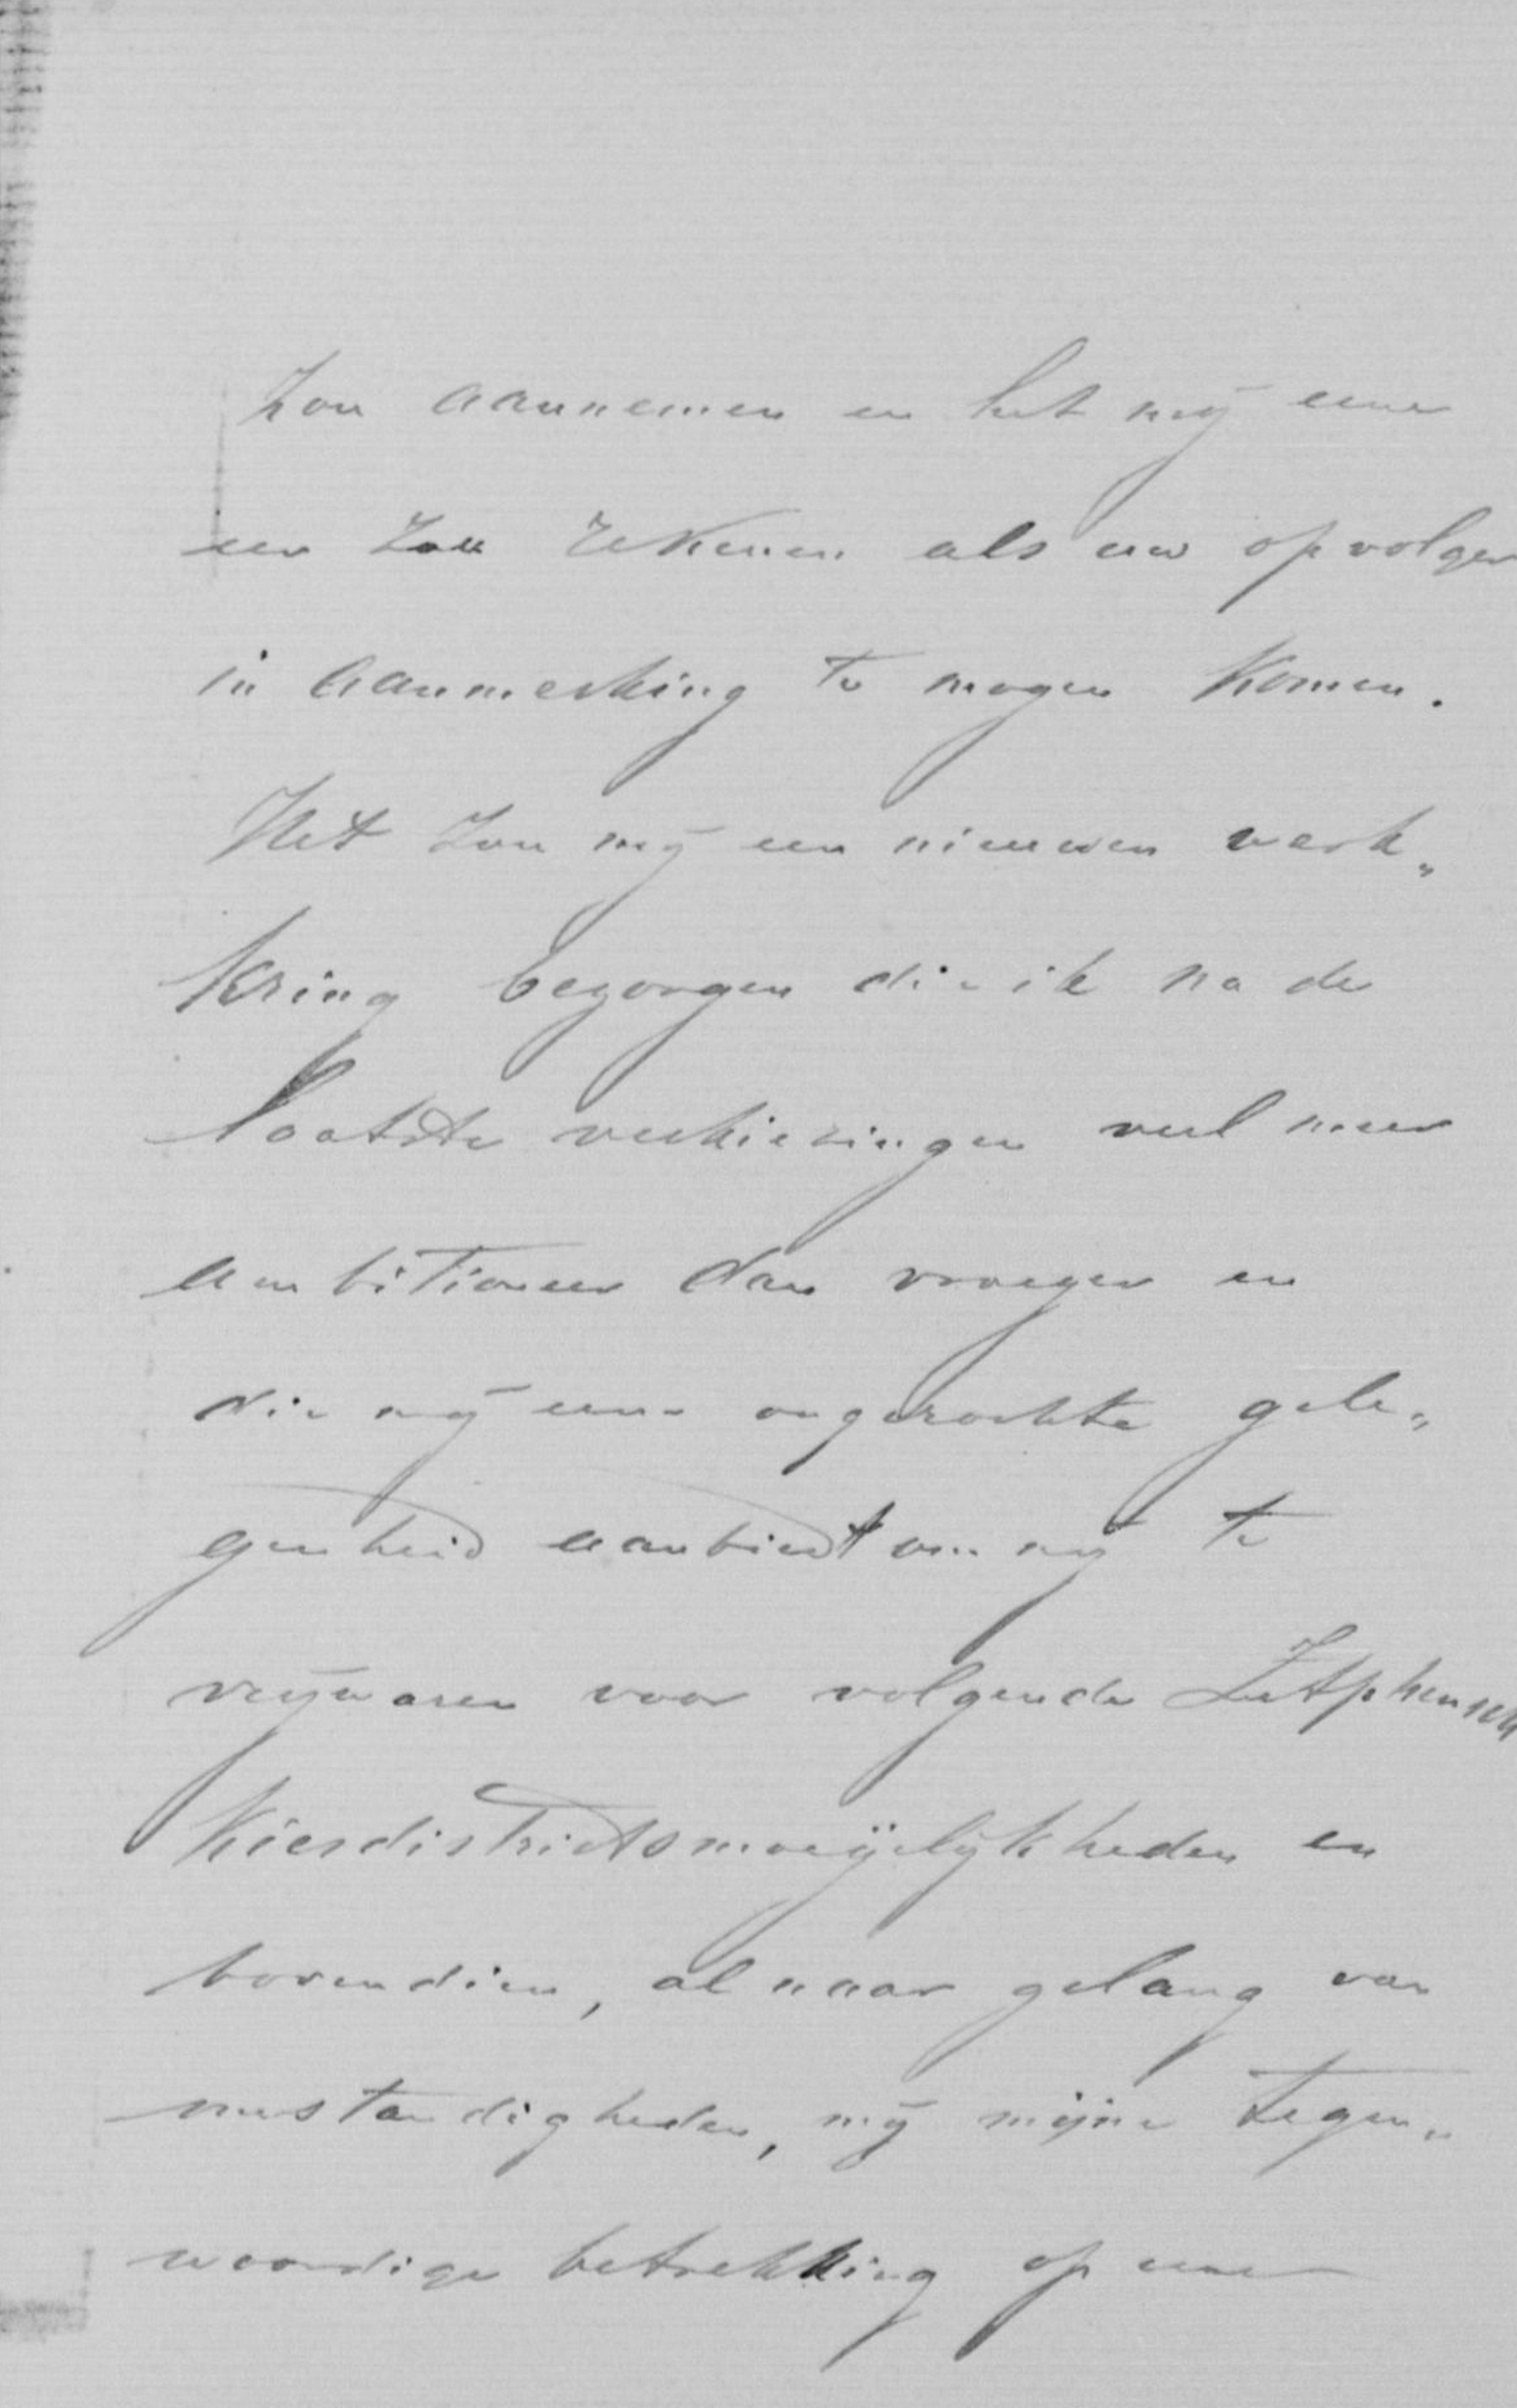 zou aannemen en het mij eene
eer zou rekenen als uw opvolger
in aanmerking te mogen komen.
Het zou mij een nieuwen werk„
kring bezorgen die ik na de
laatste verkiezingen veel meer
ambitioneer dan vroeger en
die mij eene ongezochte gele„
genheid aanbiedt om mij te
vrijwaren voor volgende Zutphensch
Kiesdistrictsmoeijelijkheden en
bovendien, al naar gelang van
omstandigheden, mij mijne tegen„
woordige betrekking op eene